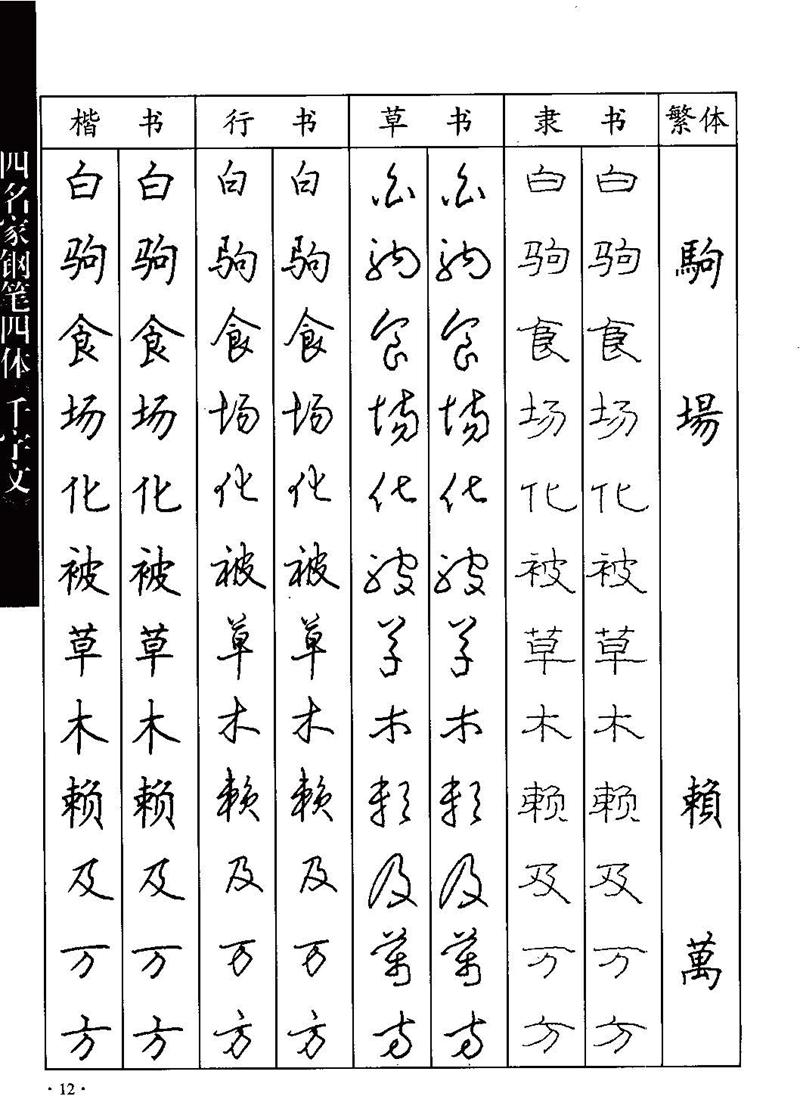 四名家钢笔四体千字文
楷书 行书 草书 隶书 繁体
白驹食场化被草木赖及万方
白驹食场化被草木赖及万方
白驹食场化被草木赖及万方
白驹食场化被草木赖及万方
白驹食场化被草木赖及万方
白驹食场化被草木赖及万方
白驹食场化被草木赖及万方
白驹食场化被草木赖及万方
駒場賴萬
·12·